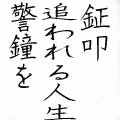 鉦叩
追われる人生
警鐘を